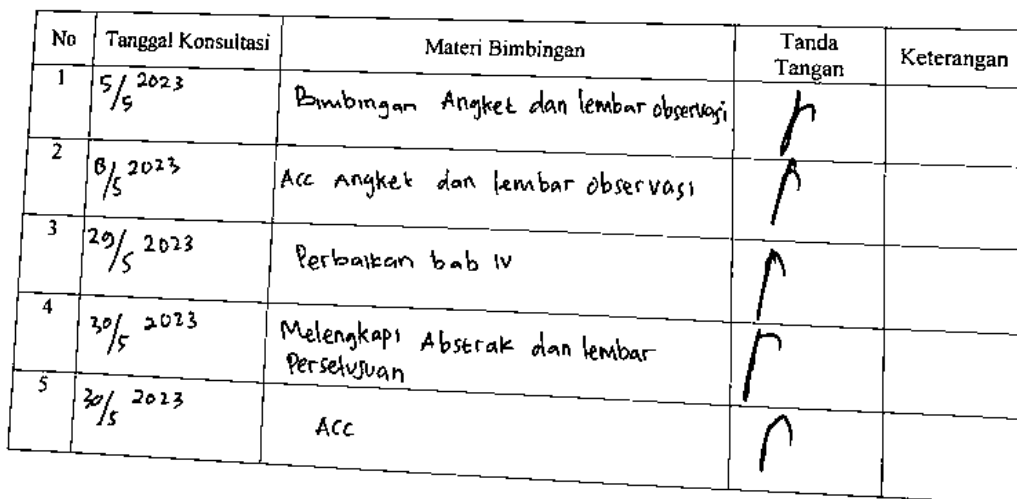 No Tanggal Konsultasi Materi Bimbingan Tanda Tangan Keterangan
1 5/5 2023 Bimbingan Angket dan lembar observasi
2 8/5 2023 Acc Angket dan lembar observasi
3 29/5 2023 Perbaikan bab IV
4 30/5 2023 Melengkapi Abstrak dan lembar
Persetujuan
5 30/5 2023 ACC